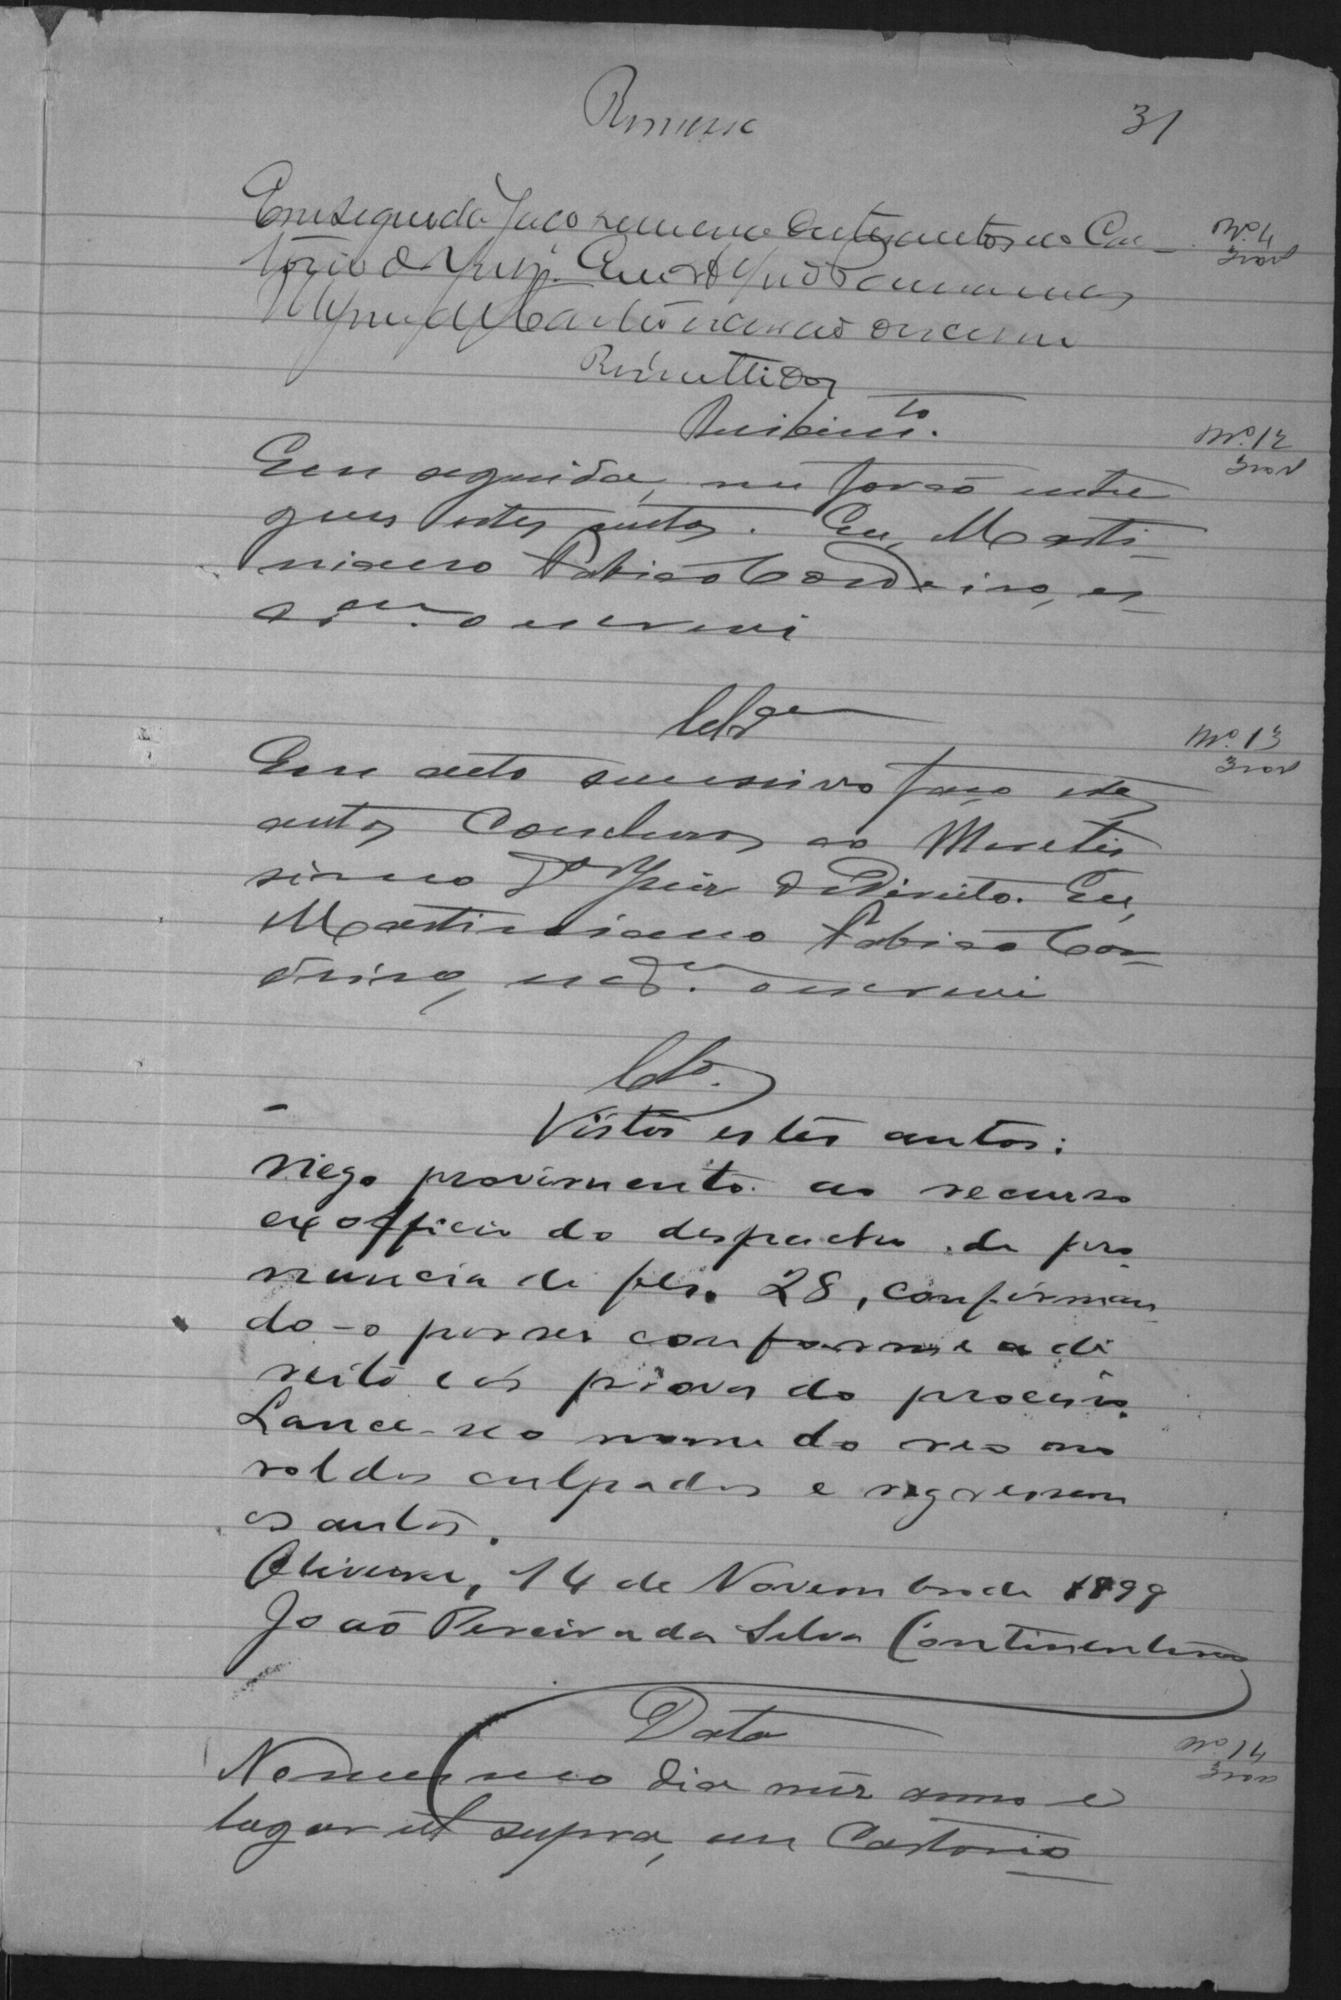 Remessa
31
Em seguida faço remessa destes autos ao Car-
torio do Jury. Eu
escrivão o escrevi
Remettidos
Recebim.to
Nº. 12
Em seguida, me forão entre
gues estes autos. Eu, Marti-
niano Fabião Cordeiro, es-
o escrevi
Clsão
Nº. 13
Em acto sucessivo faço estes
autos Conclusos ao Meretis
simo Dor Juiz de Direito. Eu,
Martiniano Fabião Cor-
deiro, o escrevi
Clos.
Vistos estes autos:
nego provimento ao recurso
ex officio do despacho de pro
nuncia de fls. 28, confirman
do-o por ser conforme a di
reito e ás provas do processo.
Lance-se o nome do reo no
rol dos culpados e regressem
os autos.
Oliveira, 14 de Novembro de 1899
João Pereira da Silva Continentino
Data
Nº 14
No mesmo dia mez anno e
lugar ut supra, em Cartorio